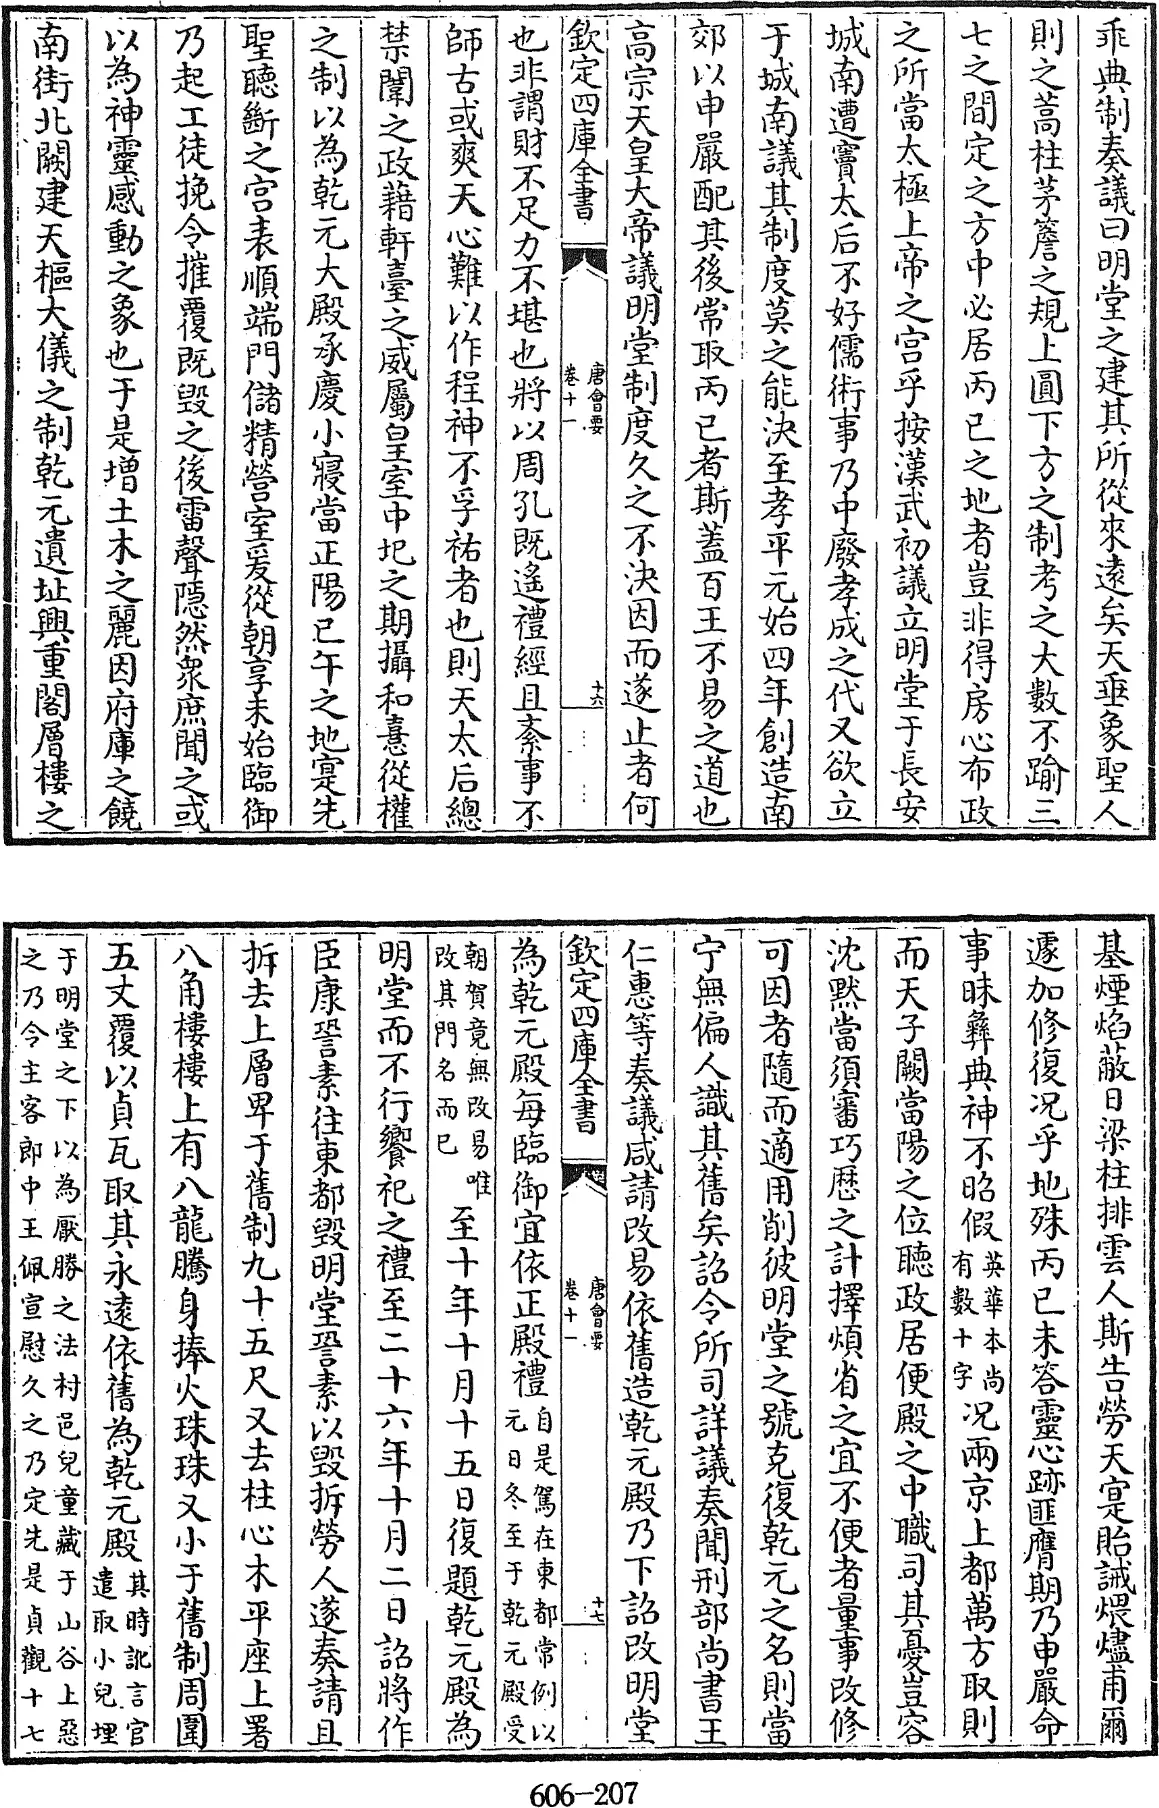 乖典制奏議曰明堂之建其所從來遠矣天垂象聖人
則之蒿柱茅簷之規上圓下方之制考之大數不踰三
七之間定之方中必居丙巳之地者豈非得房心布政
之所當太極上帝之宮乎按漢武初議立明堂于長安
城南遭竇太后不好儒術事乃中廢孝成之代又欲立
于城南議其制度莫之能決至孝平元始四年創造南
郊以申嚴配其後常取丙巳者斯蓋百王不易之道也
高宗天皇大帝議明堂制度久之不決因而遂止者何
欽定四庫全書
唐會要
卷十一
十六
也非謂財不足力不堪也將以周孔既遙禮經且紊事不
師古或爽天心難以作程神不孚祐者也則天太后總
禁闈之政藉軒臺之威屬皇室中圮之期攝和憙從權
之制以為乾元大殿承慶小寢當正陽巳午之地寔先
聖聽斷之宮表順端門儲精營室爰從朝享未始臨御
乃起工徒挽令摧覆既毀之後雷聲隱然衆庶聞之或
以為神靈感動之象也于是增土木之麗因府庫之饒
南街北闕建天樞大儀之制乾元遺址興重閣層樓之
基煙焰蔽日梁柱排雲人斯告勞天寔貽誡煨燼甫爾
遽加修復况乎地殊丙巳未答靈心跡匪膺期乃申嚴命
事昧彝典神不昭假英華本尚有數十字况兩京上都萬方取則
而天子闕當陽之位聽政居便殿之中職司其憂豈容
沈默當須審巧歴之計擇煩省之宜不便者量事改修
可因者隨而適用削彼明堂之號克復乾元之名則當
宁無偏人識其舊矣詔令所司詳議奏聞刑部尚書王
仁惠等奏議咸請改易依舊造乾元殿乃下詔改明堂
欽定四庫全書
唐會要
卷十一
十七
為乾元殿每臨御宜依正殿禮自是駕在東都常例以元日冬至于乾元殿受
朝賀竟無改易唯改其門名而已至十年十月十五日復題乾元殿為
明堂而不行饗祀之禮至二十六年十月二日詔將作
臣康䛒素往東都毀明堂䛒素以毀拆勞人遂奏請且
拆去上層卑于舊制九十五尺又去柱心木平座上署
八角樓樓上有八龍騰身捧火珠珠又小于舊制周圍
五丈覆以貞瓦取其永遠依舊為乾元殿其時訛言官遣取小兒埋
于明堂之下以為厭勝之法村邑兒童藏于山谷上惡
之乃令主客郎中王佩宣慰久之乃定先是貞觀十七
606-207